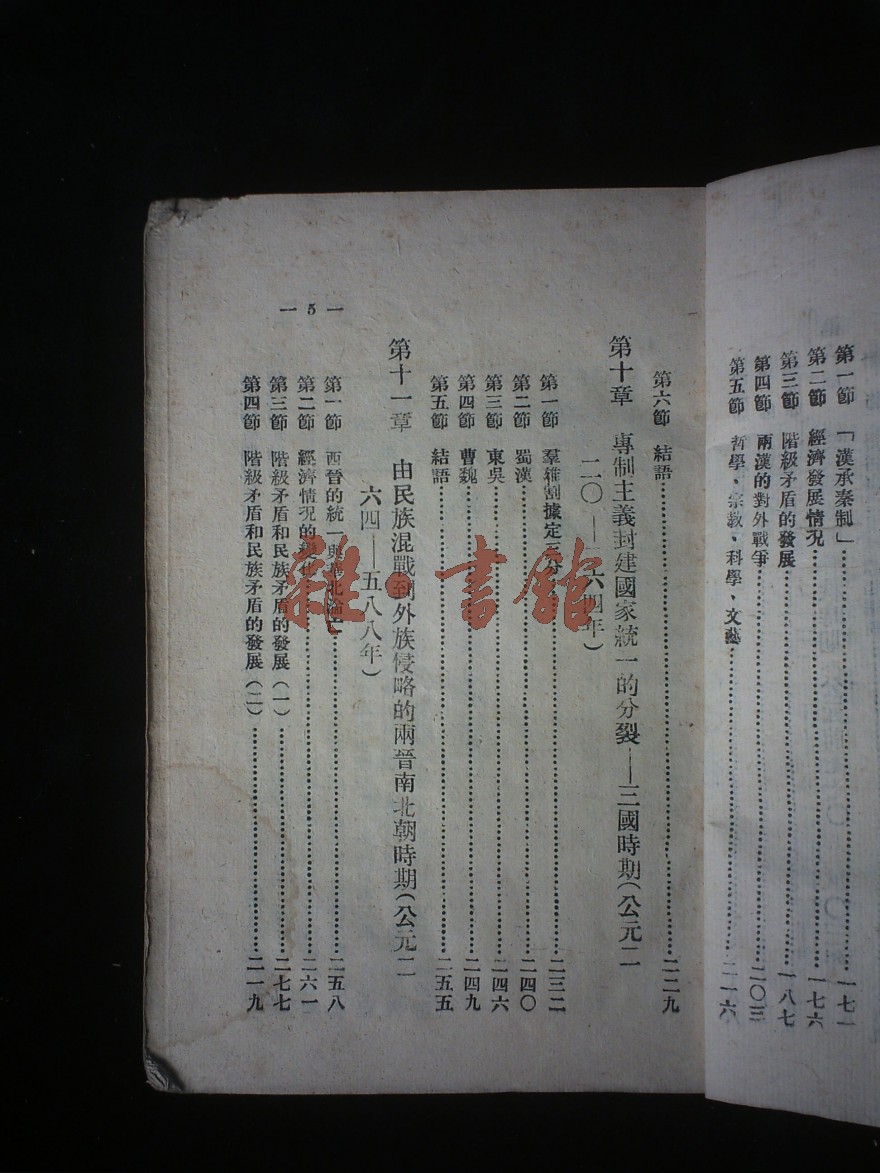 第一節　「漢承秦制」……一七一
第二節　經濟發展情況……一七六
第三節　階級矛盾的發展……一八七
第四節　兩漢的對外戰爭……二〇三
第五節　哲學、宗教、科學、文藝……二一六
第六節　結語……二二九
第十章　專制主義封建國家統一的分裂——三國時期(公元二
二〇——二六四年)
第一節　羣雄割據定三分……二三二
第二節　蜀漢……二四〇
第三節　東吳……二四六
第四節　曹魏……二四九
第五節　結語……二五五
第十一章　由民族混戰到外族侵略的兩晉南北朝時期(公元二
六四——五八八年)
第一節　西晉的統一與華北淪亡……二五八
第二節　經濟情況的變化……二六一
第三節　階級矛盾和民族矛盾的發展(一)……二七七
第四節　階級矛盾和民族矛盾的發展(二)……二一九
— 5 —
雜·書館